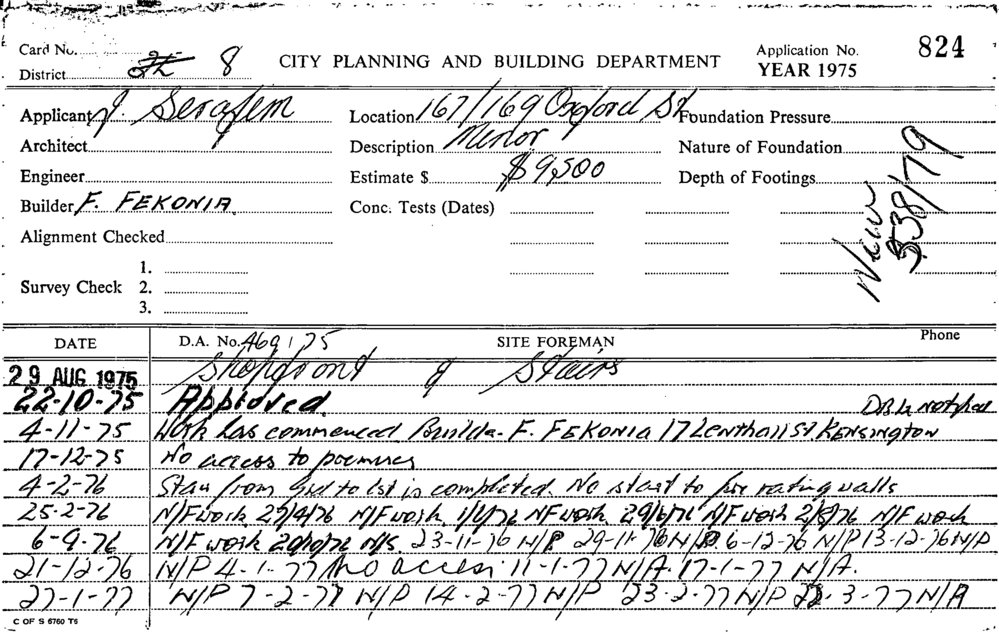 Card No.
District 8
CITY PLANNING AND BUILDING DEPARTMENT
Application No. 824
YEAR 1975
Applicant J. Serafim
Location 167/169 Oxford St
Foundation Pressure
Architect
Description Minor
Nature of Foundation
Engineer
Estimate $ $9,500
Depth of Footings
Builder F. FEKONIA
Conc. Tests (Dates)
View 338/79
Alignment Checked
1.
Survey Check 2.
3.
DATE D.A. No. 469/75 SITE FOREMAN Phone
29 AUG 1975 Shopfront & Stairs
22-10-75 Approved. notified
4-11-75 Work has commenced Builder F. FEKONIA 17 Lenthall St KENSINGTON
17-12-75 No access to premises
4-2-76 Stair from Grd to 1st is completed. No start to fire rating walls
25-2-76 N/F work 27/4/76 N/F work 1/6/76 N/F work 29/6/76 N/F work 2/8/76 N/F work
6-9-76 N/F work 20/10/76 N/S. 23-11-76 N/P 29-11-76 N/P 6-12-76 N/P 13-12-76 N/P
21-12-76 N/P 4-1-77 No access 11-1-77 N/A. 17-1-77 N/A.
27-1-77 N/P 7-2-77 N/P 14-2-77 N/P 23-2-77 N/P 22-3-77 N/A
C OF S 6760 T6